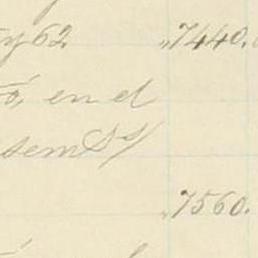 y 62. „7440.
ó, en el
sem
„7560.